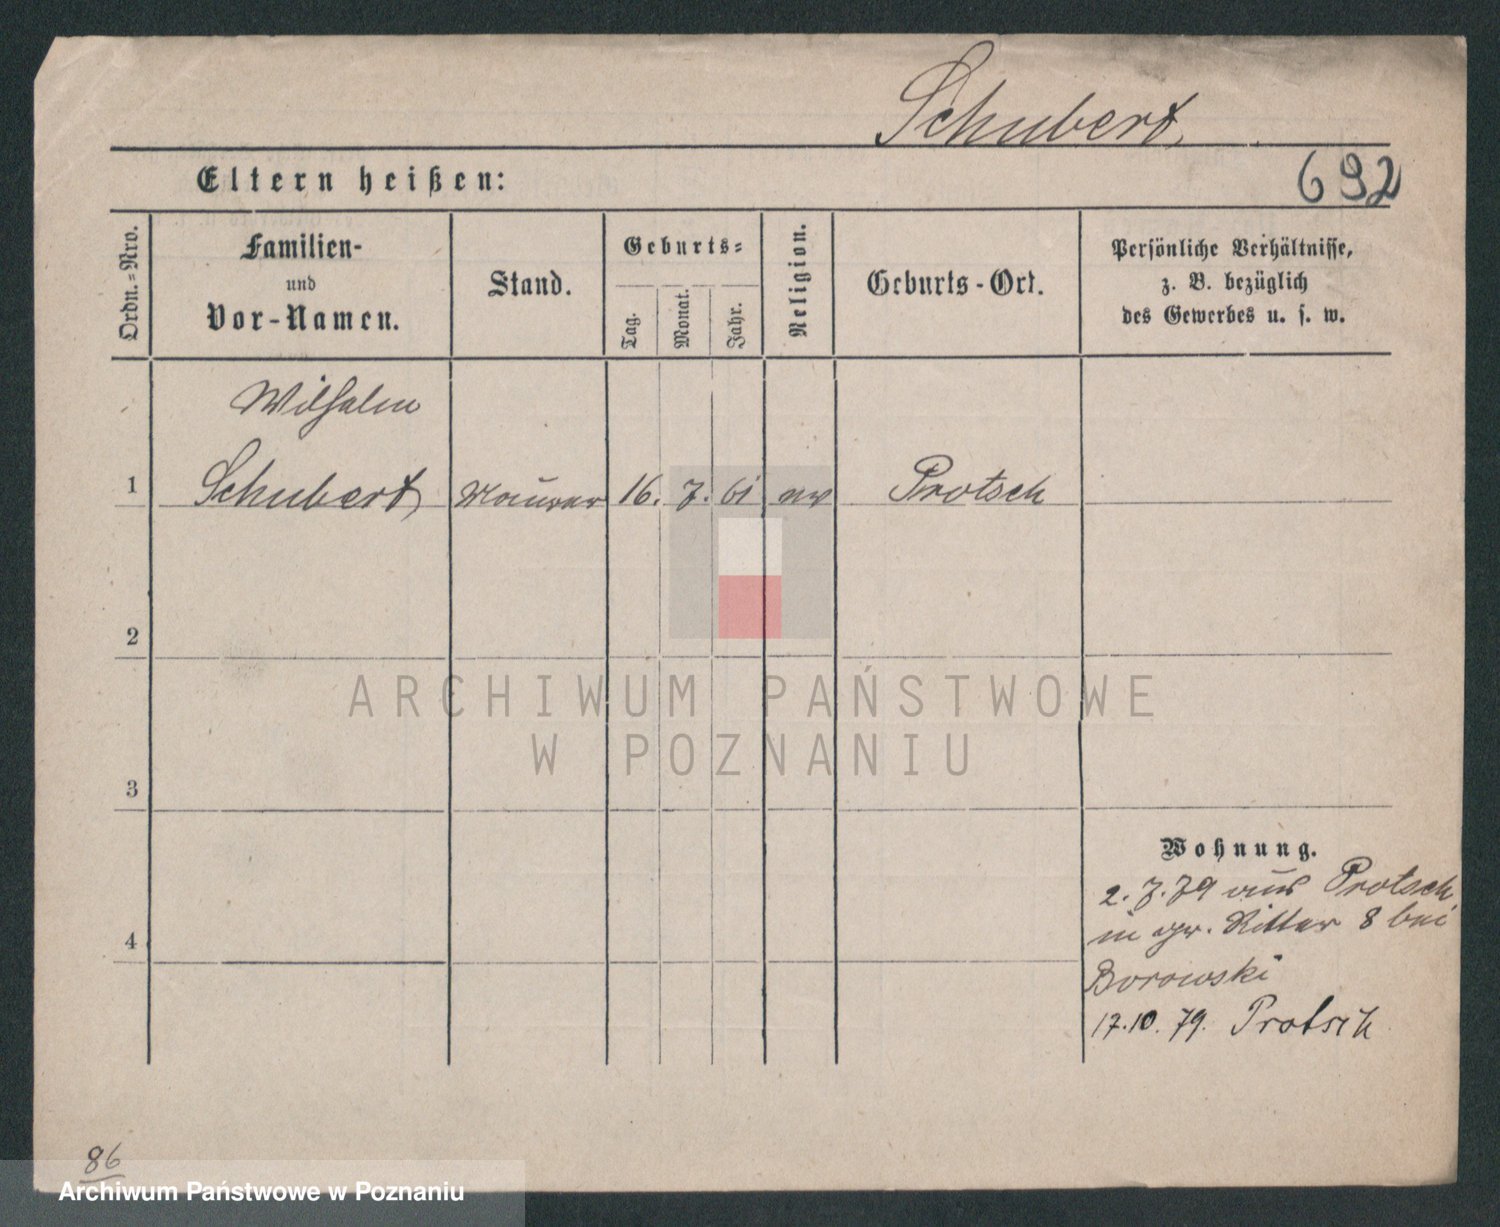 Schubert
692
Eltern heißen:
Ordn.-Nro.
Familien-
und
Vor-Namen.
Stand.
Geburts-
Tag.
Monat.
Jahr.
Religion.
Geburts-Ort.
Persönliche Verhältnisse,
z. B. bezüglich
des Gewerbes u. s. w.
Wilhelm
1 Schubert Maurer 16. 7. 61 ev Protsch
2
ARCHIWUM PAŃSTWOWE
W POZNANIU
3
Wohnung.
2. 7. 79 aus Protsch
in gr. Ritter 8 bei
4
Borowski
17.10. 79. Protsch
86
Archiwum Państwowe w Poznaniu